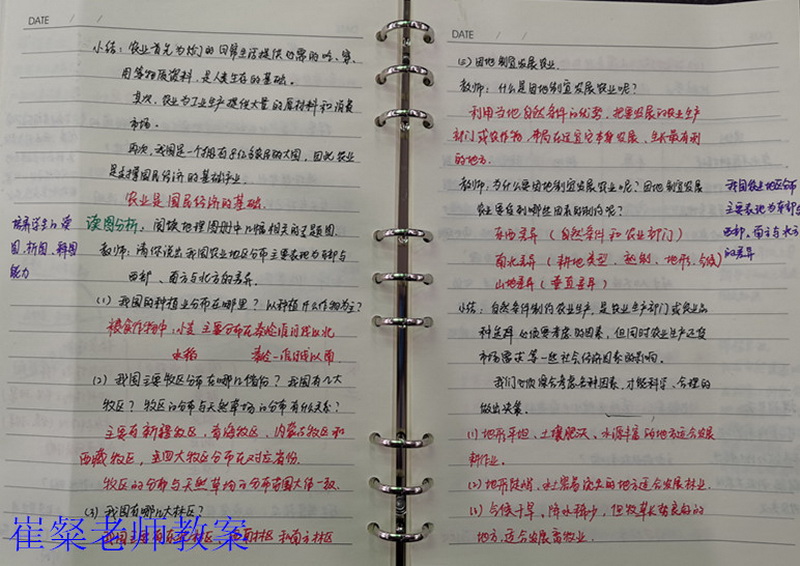 DATE / /
小结：农业首先为我们的日常生活提供必需的吃、穿、
用等物质资料，是人类生存的基础。
其次，农业为工业生产提供大量的原材料和消费
市场。
再次，我国是一个拥有8亿多农民的大国，因此农业
是支撑国民经济的基础产业。
农业是国民经济的基础。
培养学生的读
图、析图、释图
能力
读图分析，阅读地理图册中的几幅相关的专题图。
教师：请你说出我国农业地区分布主要表现为东部与
西部、南方与北方的差异。
(1) 我国的种植业分布在哪里？以种植什么作物为主？
粮食作物中：小麦 主要分布在秦岭淮河线以北
水稻 秦岭-淮河线以南
(2) 我国主要牧区分布在哪几个省份？我国有几大
牧区？牧区的分布与天然草场的分布有什么关系？
主要有新疆牧区，青海牧区，内蒙古牧区和
西藏牧区，这四大牧区分布在对应省份。
牧区的分布与天然草场的分布范围大体一致。
(3) 我国有哪几大林区？
林区 西南林区和南方林区
崔粲老师教案
DATE / /
(4) 因地制宜发展农业。
教师：什么是因地制宜发展农业呢？
利用当地自然条件的优势，把要发展的农业生产
部门或农作物，布局在适宜它本身发展、生长最有利
的地方。
教师：为什么要因地制宜发展农业呢？因地制宜发展
农业要受到哪些因素的制约呢？
我国农业地区分布
主要表现为东部与
西部，南方与北方
的差异
东西差异（自然条件和农业部门）
南北差异（耕地类型、熟制、地形、气候）
山地差异（垂直差异）
小结：自然条件制约农业生产，是农业生产部门或农业品
种选择必须要考虑的因素，但同时农业生产还受
市场需求等一些社会经济因素的影响。
我们必须综合考虑各种因素，才能科学、合理的
做出决策。
(1) 地形平坦、土壤肥沃、水源丰富的地方适合发展
耕作业。
(2) 地形陡峭、水土容易流失的地方适合发展林业。
(3) 气候干旱、降水稀少，但牧草长势良好的
地方，适合发展畜牧业。